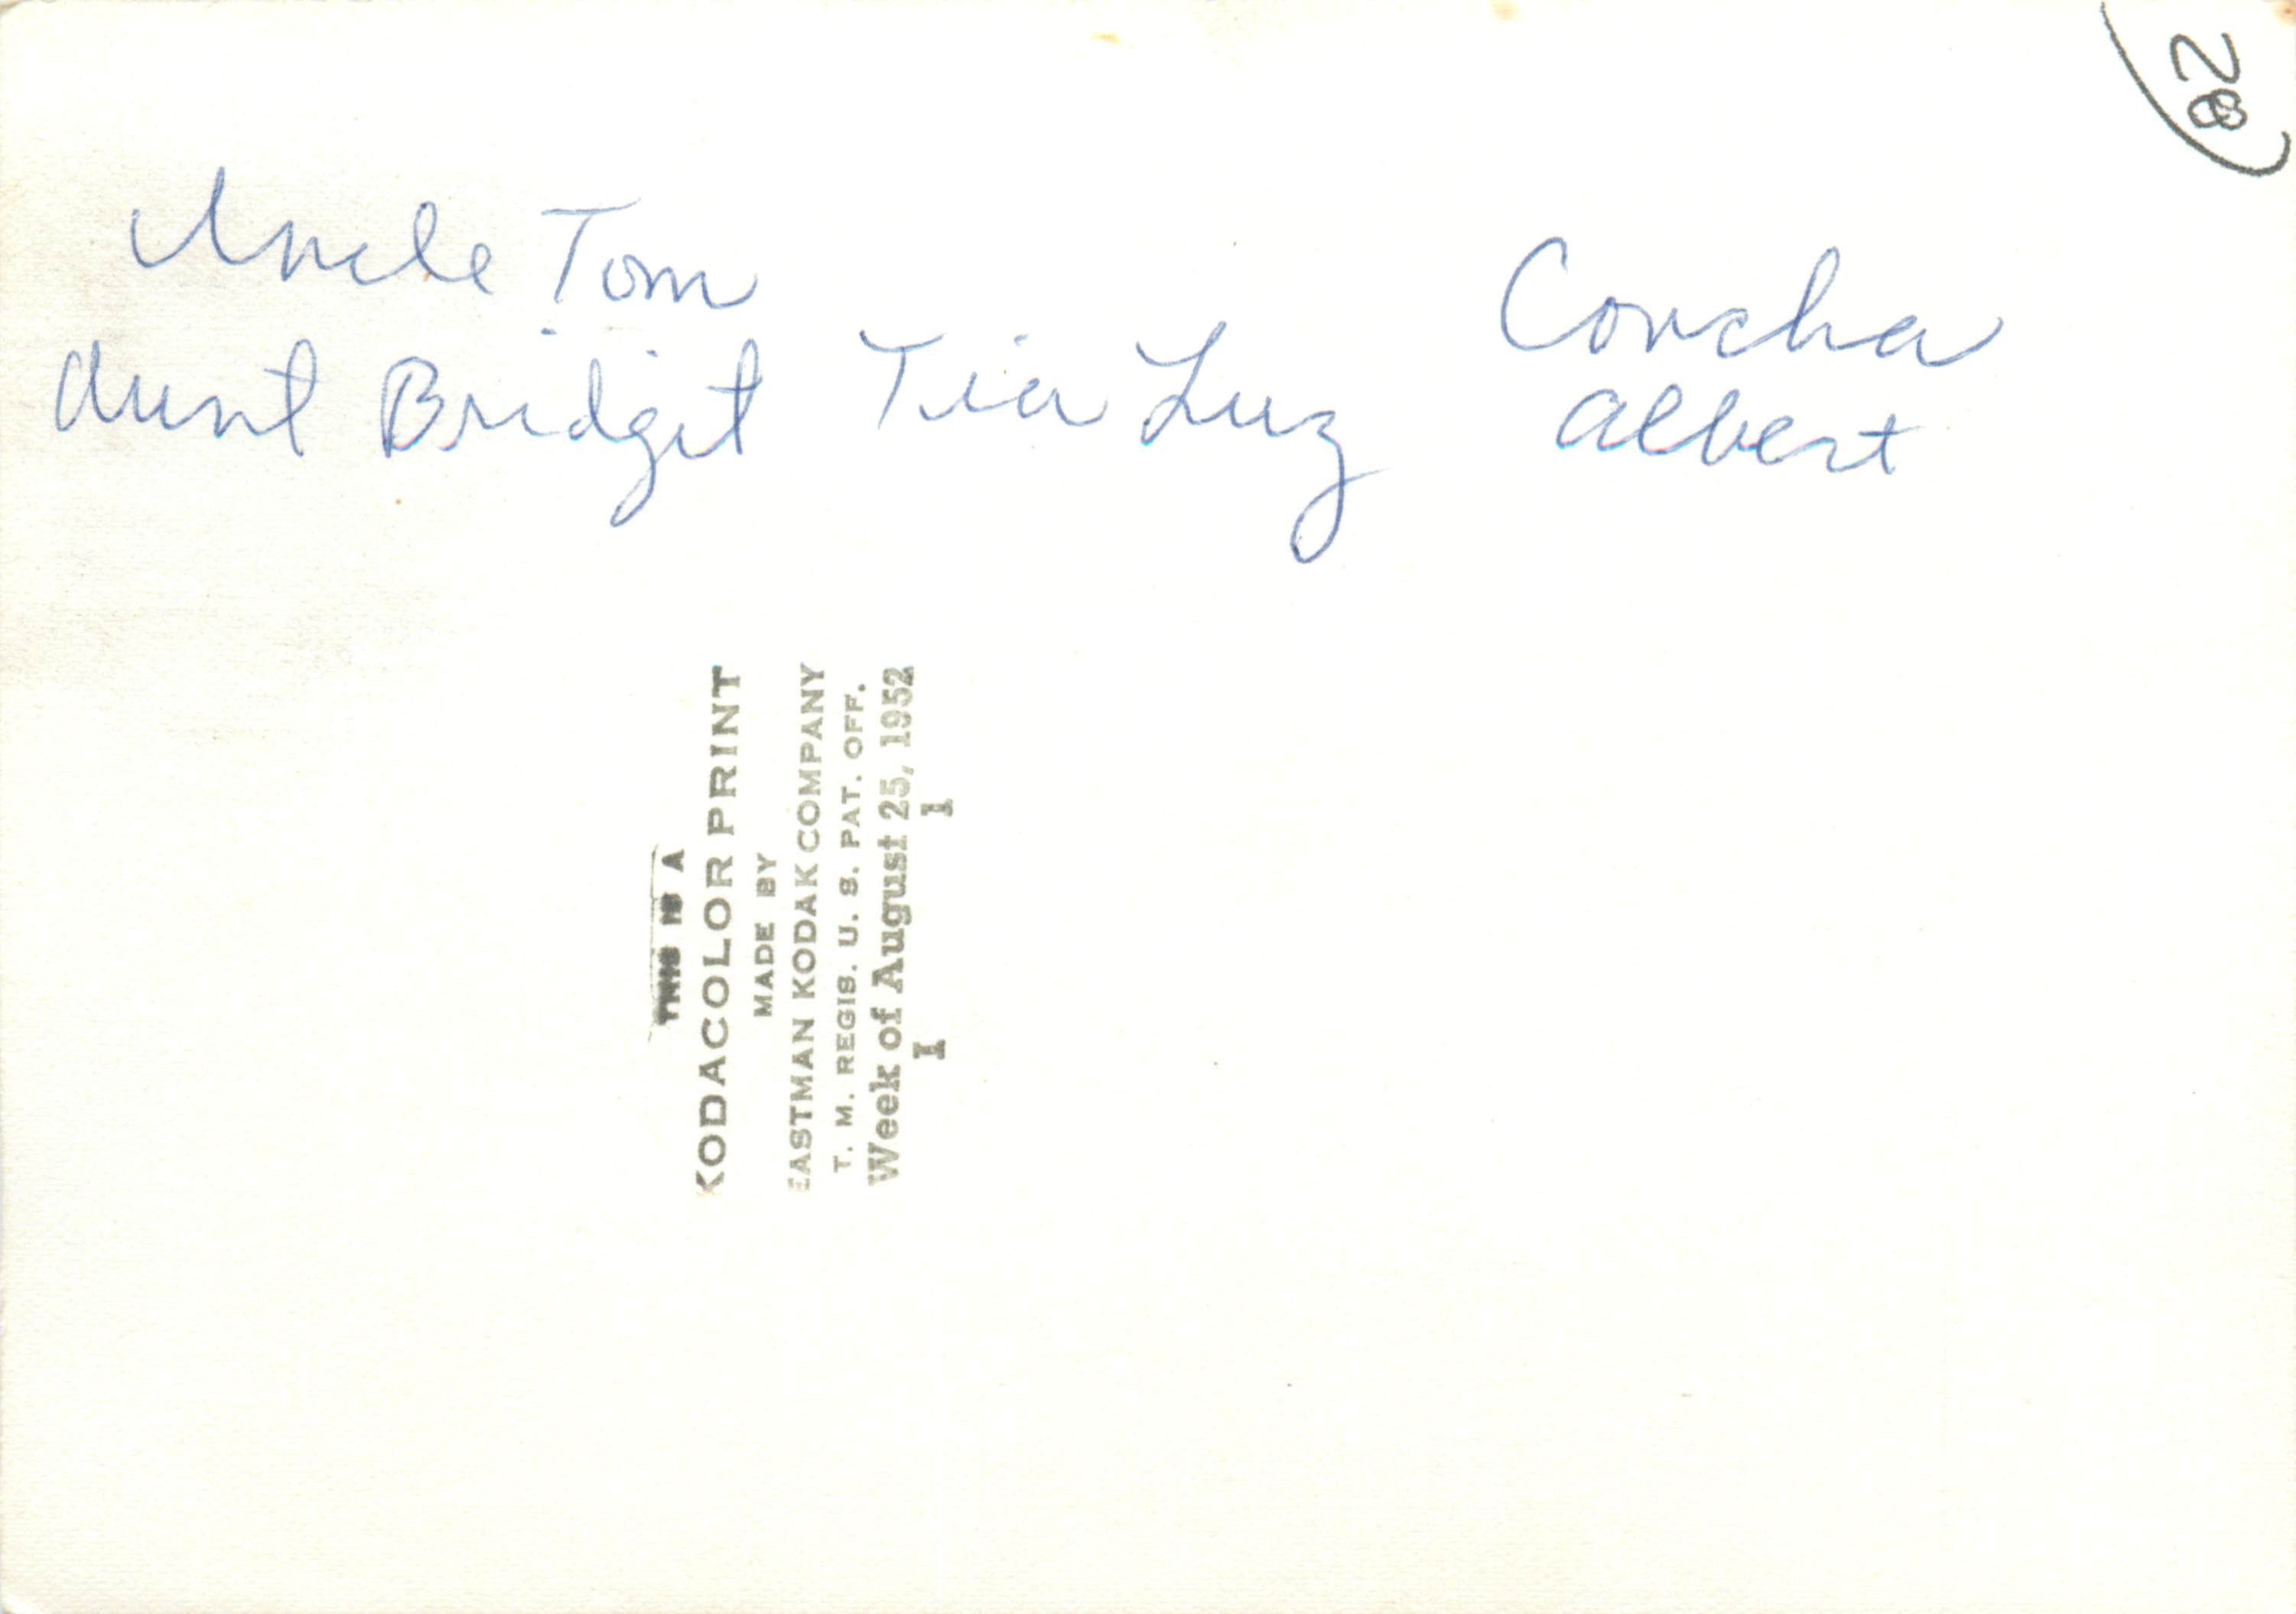 28
Uncle Tom
Aunt Bridget Tia Luz
Concha
Albert
THIS IS A
KODACOLOR PRINT
MADE BY
EASTMAN KODAK COMPANY
T. M. REGIS. U. S. PAT. OFF.
Week of August 25, 1952
I 1